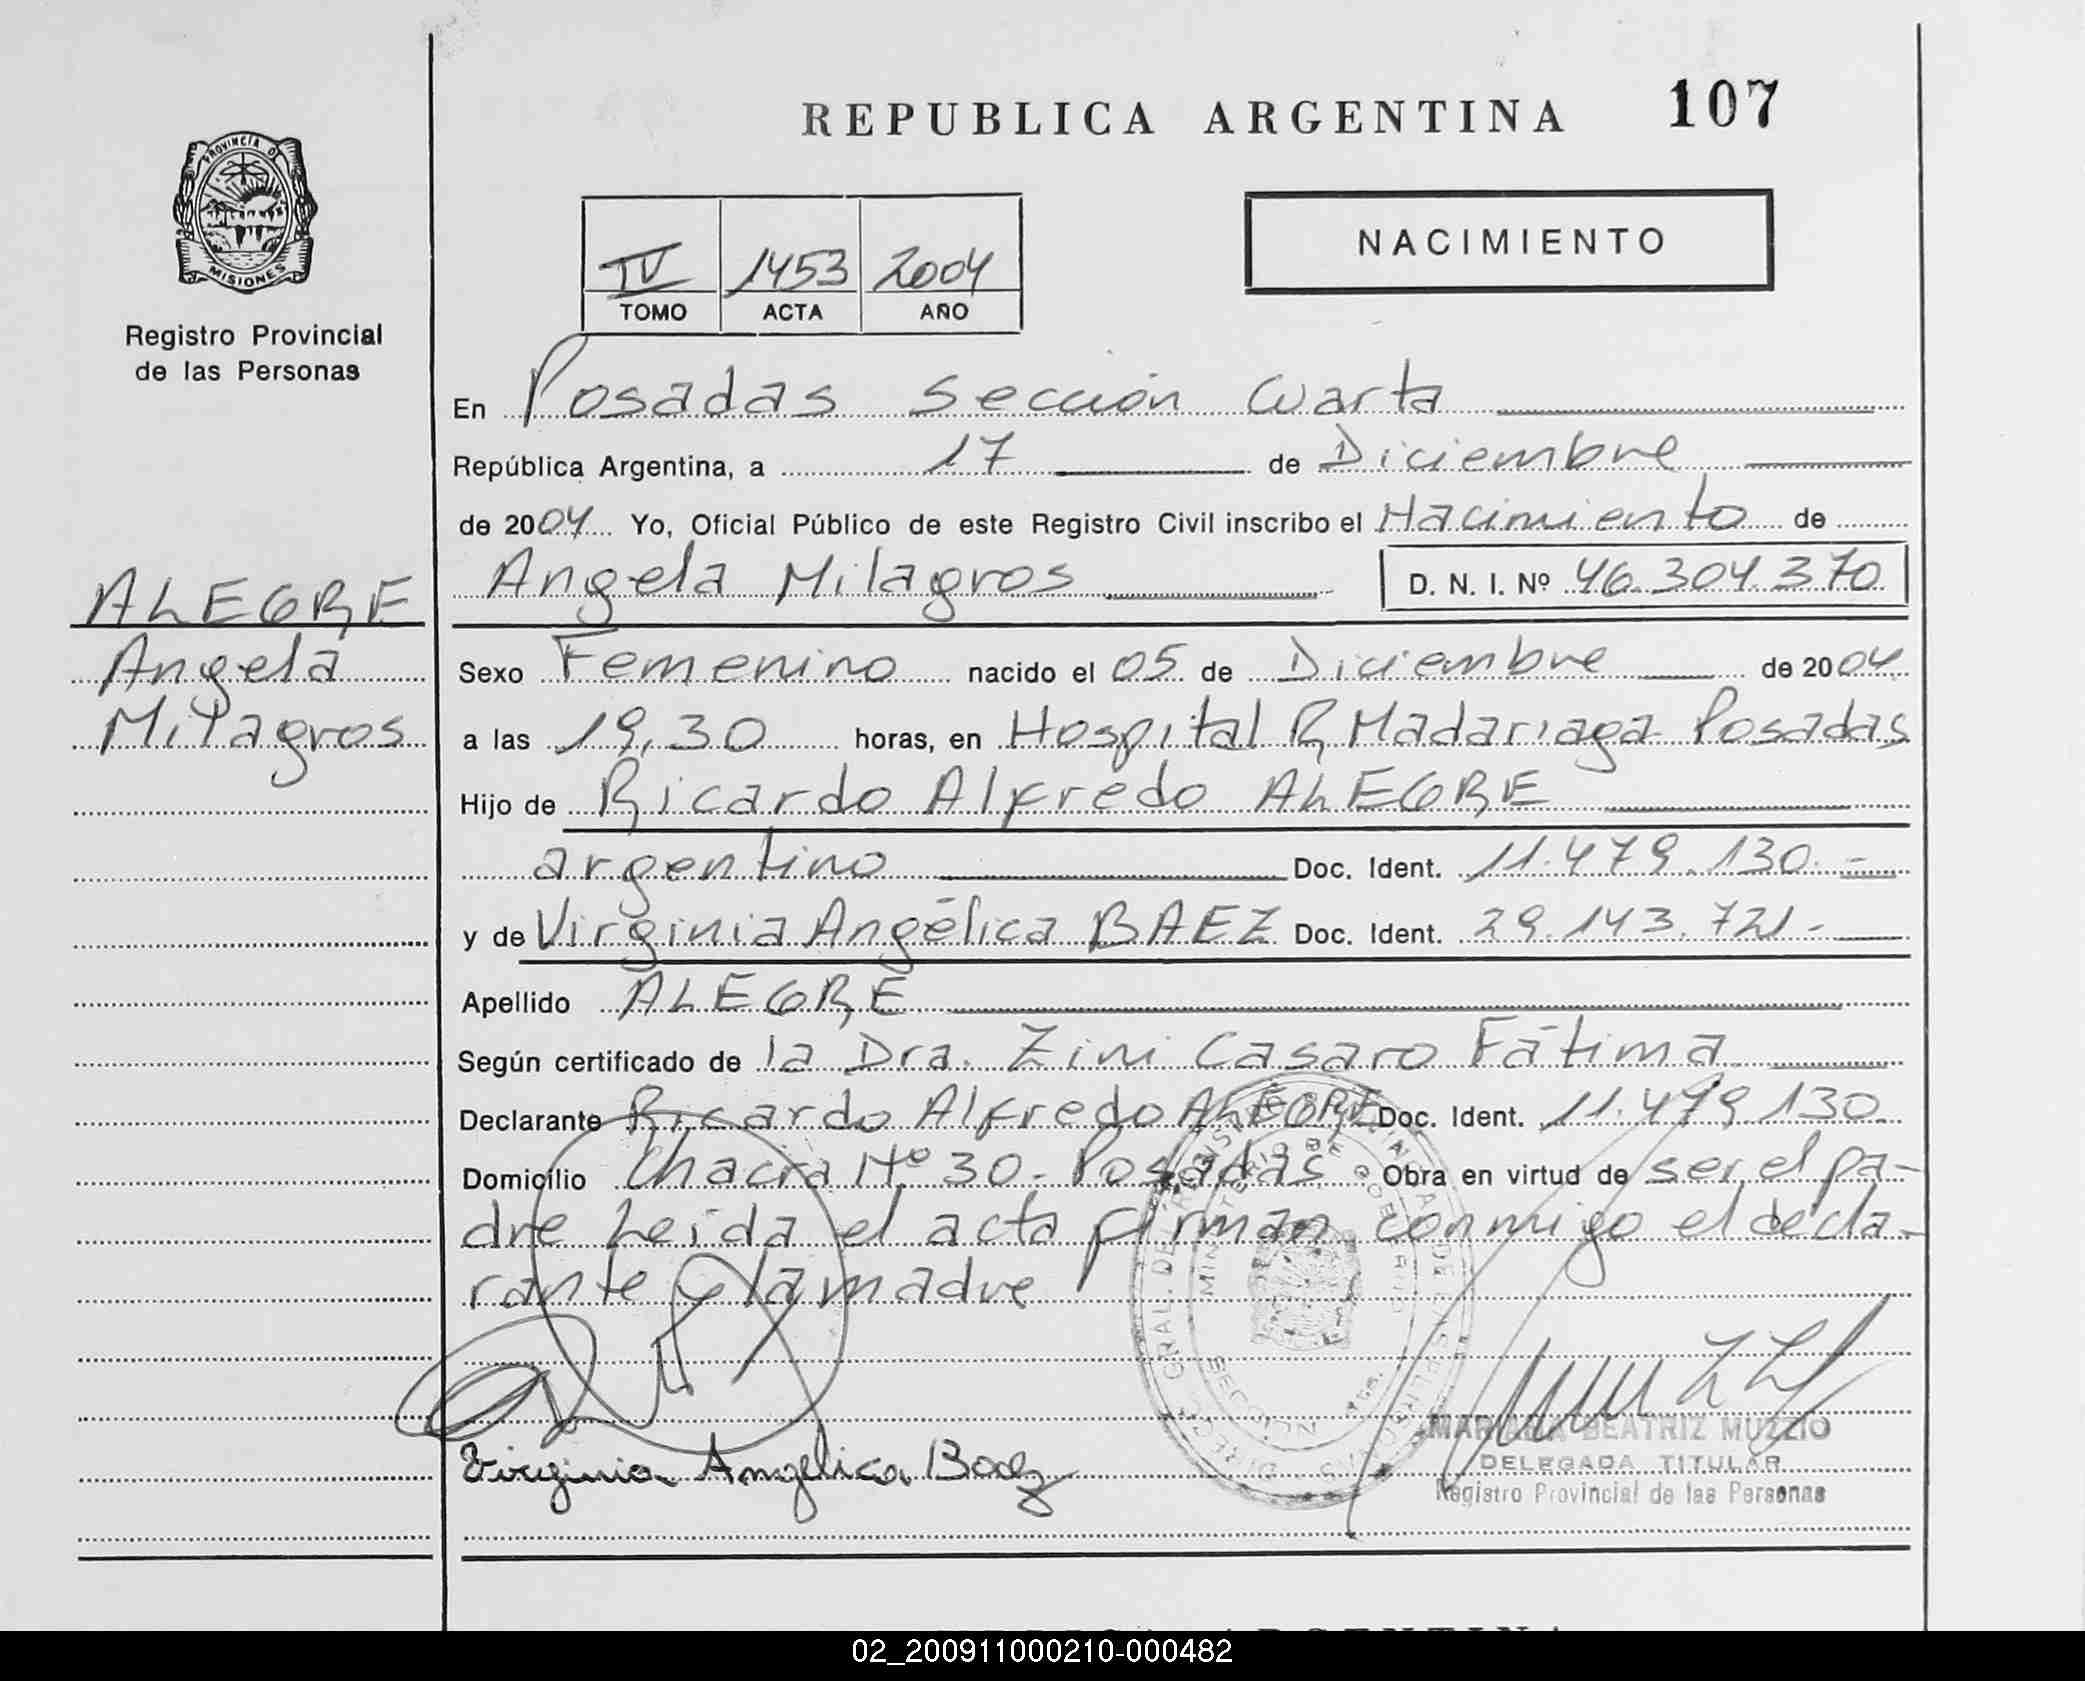 REPUBLICA ARGENTINA 107
PROVINCIA DE
MISIONES
Registro Provincial
de las Personas
NACIMIENTO
IV 1453 2004
TOMO ACTA AÑO
En Posadas Sección Cuarta
República Argentina, a 17 de Diciembre
de 2004 Yo, Oficial Público de este Registro Civil inscribo el Nacimiento de
Angela Milagros D. N. I. Nº 46.304.370
ALEGRE
Angela
Milagros
Sexo Femenino nacido el 05 de Diciembre de 2004
a las 19,30 horas, en Hospital R Madariaga Posadas
Hijo de Ricardo Alfredo ALEGRE
argentino Doc. Ident. 11.479.130.-
y de Virginia Angélica BAEZ Doc. Ident. 29.143.721-
Apellido ALEGRE
Según certificado de la Dra. Zini Casaro Fátima
Declarante Ricardo Alfredo ALEGRE Doc. Ident. 11.479.130
Domicilio Chacra Nº 30- Posadas Obra en virtud de ser el pa-
dre Leída el acta firman conmigo el decla-
rante y la madre
Virginia Angelica Baez
MARIANA BEATRIZ MUZZIO
DELEGADA TITULAR
Registro Provincial de las Personas
02_200911000210-000482